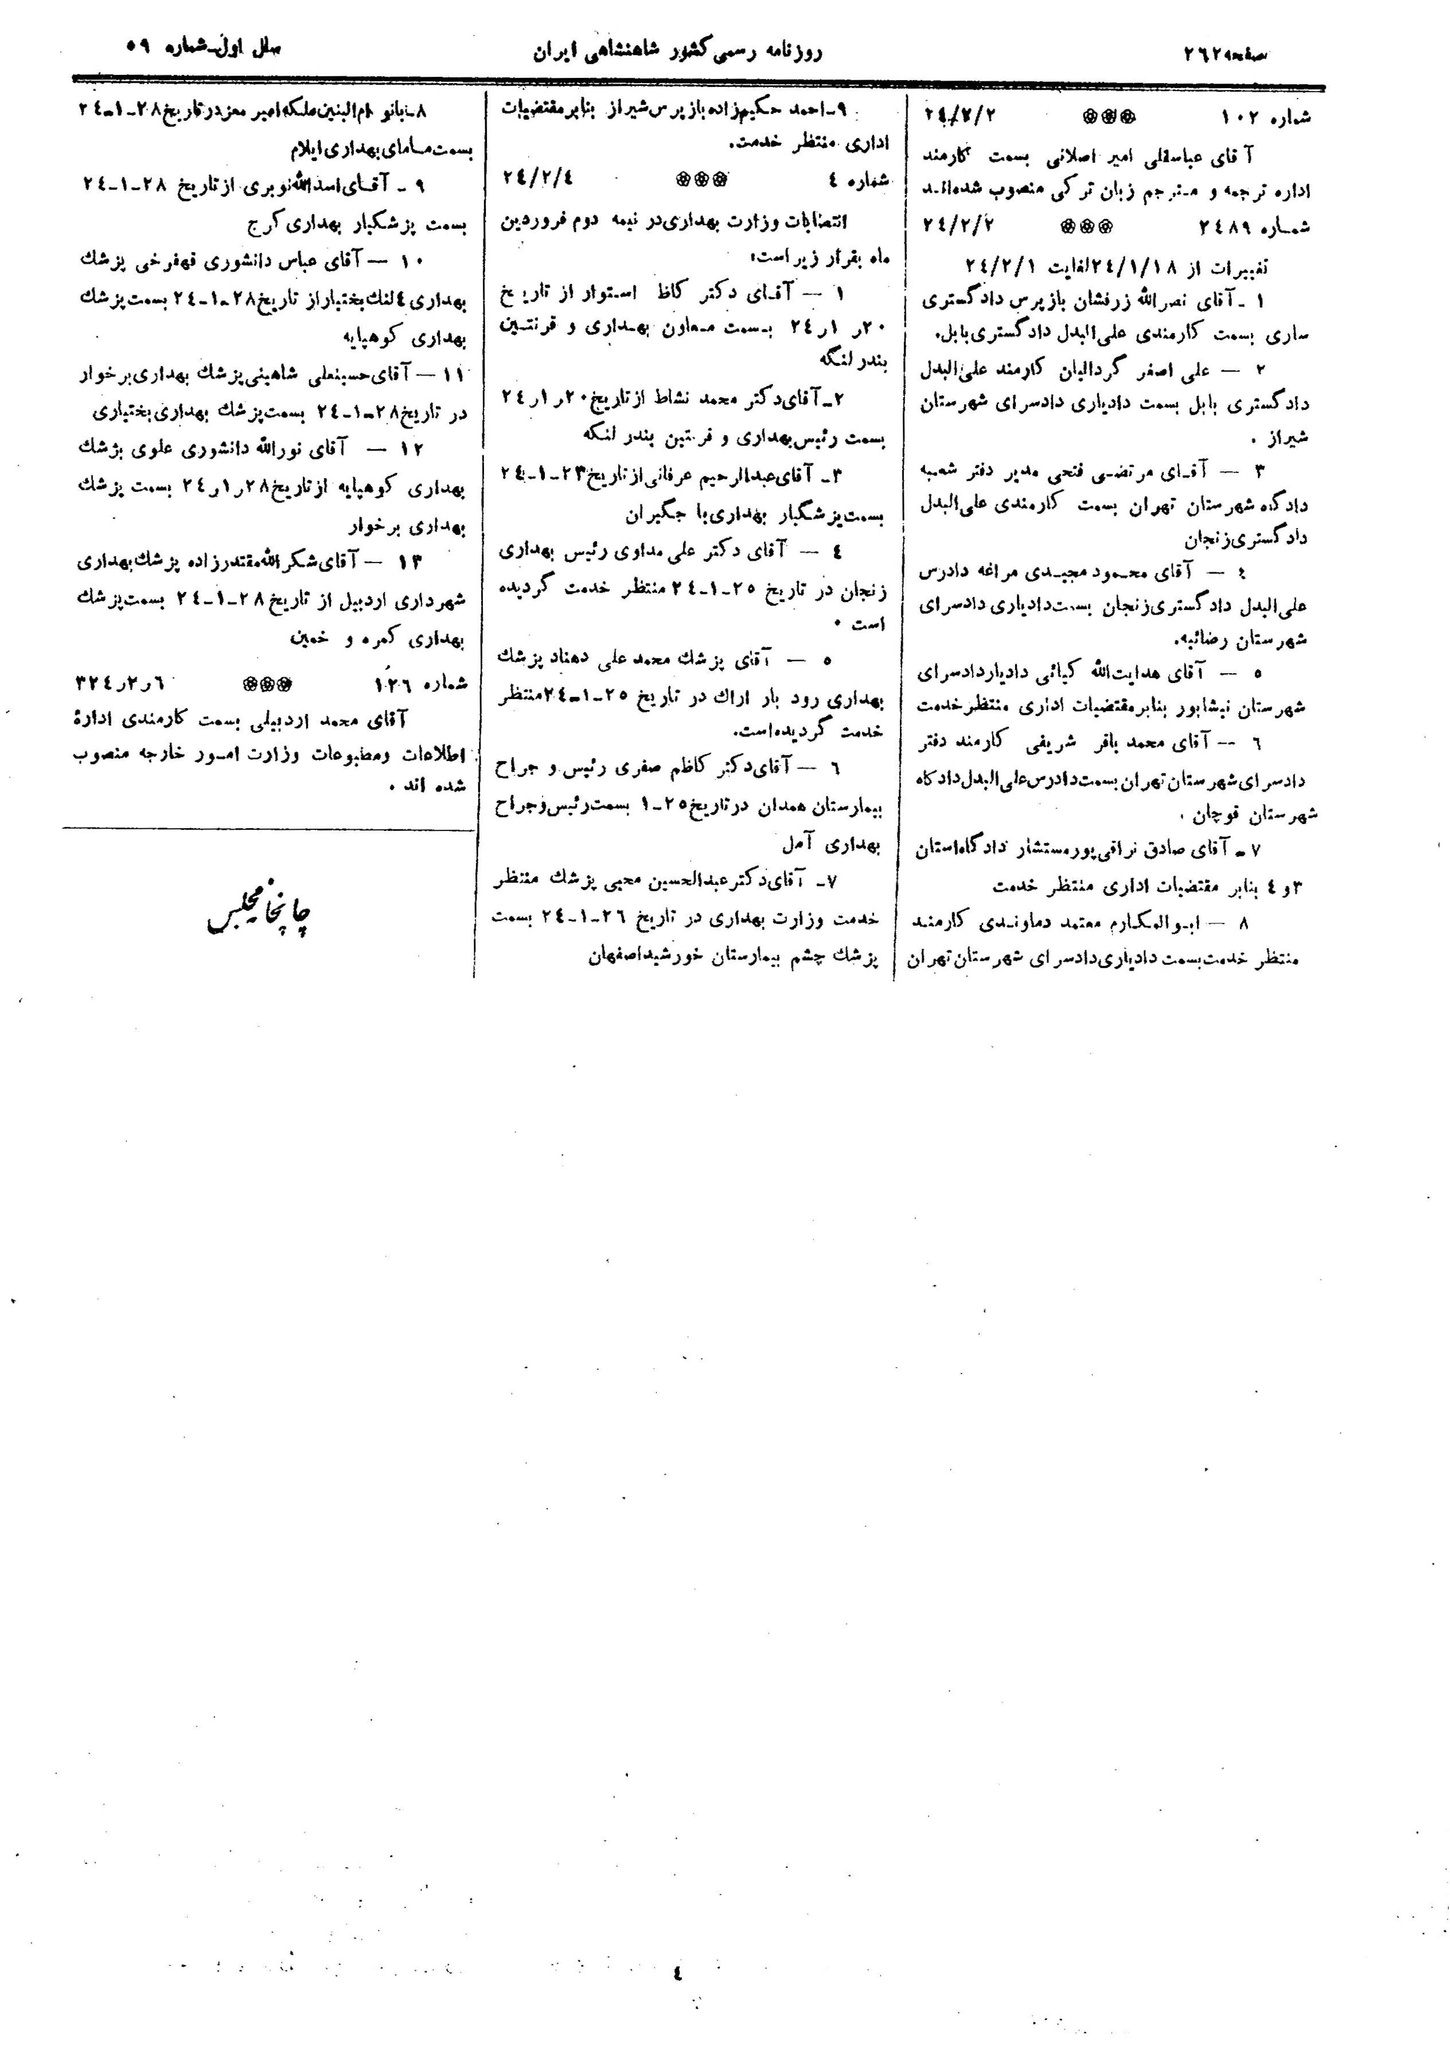 صفحه ۲۶۲
روزنامه رسمی کشور شاهنشاهی ایران
سال اول-شماره ۵۹
شماره ۱۰۲ ۲٤/۲/۲
آقای عباسقلی امیر اصلانی بسمت کارمند
اداره ترجمه و مترجم زبان ترکی منصوب شده‌اند
شماره ۲٤۸۹ ۲٤/۲/۲
تغییرات از ۲٤/۱/۱۸ لغایت ۲٤/۲/۱
۱ - آقای نصرالله زرفشان بازپرس دادگستری
ساری بسمت کارمندی علی‌البدل دادگستری بابل.
۲ — علی اصغر گردالیان کارمند علی‌البدل
دادگستری بابل بسمت دادیاری دادسرای شهرستان
شیراز .
۳ — آقای مرتضی فتحی مدیر دفتر شعبه
دادگاه شهرستان تهران بسمت کارمندی علی‌البدل
دادگستری زنجان
٤ — آقای محمود مجیدی مراغه دادرس
علی‌البدل دادگستری زنجان بسمت دادیاری دادسرای
شهرستان رضائیه.
۵ — آقای هدایت‌الله کیائی دادیار دادسرای
شهرستان نیشابور بنابر مقتضیات اداری منتظر خدمت
۶ — آقای محمد باقر شریفی کارمند دفتر
دادسرای شهرستان تهران بسمت دادرس علی‌البدل دادگاه
شهرستان قوچان .
۷ - آقای صادق نراقی‌پور مستشار دادگاه استان
۳ و ٤ بنابر مقتضیات اداری منتظر خدمت
۸ — ابوالمکارم معتمد دماوندی کارمند
منتظر خدمت بسمت دادیاری دادسرای شهرستان تهران
۹- احمد حکیم‌زاده بازپرس شیراز بنابر مقتضیات
اداری منتظر خدمت.
شماره ٤ ۲٤/۲/٤
انتصابات وزارت بهداری در نیمه دوم فروردین
ماه بقرار زیر است:
۱ — آقای دکتر کاظ استوار از تاریخ
۲۰ر۱ر۲٤ بسمت معاون بهداری و قرنتین
بندر لنگه
۲- آقای دکتر محمد نشاط از تاریخ ۲۰ر۱ر۲٤
بسمت رئیس بهداری و قرنتین بندر لنگه
۳- آقای عبدالرحیم عرفانی از تاریخ ۲۳-۱-۲٤
بسمت پزشگیار بهداری باجگیران
٤ — آقای دکتر علی مداوی رئیس بهداری
زنجان در تاریخ ۲۵-۱-۲٤ منتظر خدمت گردیده
است .
۵ — آقای پزشك محمد علی دهناد پزشك
بهداری رود بار اراك در تاریخ ۲۵-۱-۲٤ منتظر
خدمت گردیده‌است.
۶ — آقای دکتر کاظم صفری رئیس و جراح
بیمارستان همدان در تاریخ ۲۵-۱ بسمت رئیس و جراح
بهداری آمل
۷- آقای دکتر عبدالحسین محبی پزشك منتظر
خدمت وزارت بهداری در تاریخ ۲۶-۱-۲٤ بسمت
پزشك چشم بیمارستان خورشید اصفهان
۸- بانو ام‌البنین ملکه امیر معز در تاریخ ۲۸-۱-۲٤
بسمت مامای بهداری ایلام
۹ - آقای اسدالله نوبری از تاریخ ۲۸-۱-۲٤
بسمت پزشکیار بهداری کرج
۱۰ — آقای عباس دانشوری قهفرخی پزشك
بهداری ٤ لنك بختیار از تاریخ ۲۸-۱-۲٤ بسمت پزشك
بهداری کوهپایه
۱۱ — آقای حسینعلی شاهینی پزشك بهداری برخوار
در تاریخ ۲۸-۱-۲٤ بسمت پزشك بهداری بختیاری
۱۲ — آقای نورالله دانشوری علوی پزشك
بهداری کوهپایه از تاریخ ۲۸ر۱ر۲٤ بسمت پزشك
بهداری برخوار
۱۳ — آقای شکرالله مقتدرزاده پزشك بهداری
شهرداری اردبیل از تاریخ ۲۸-۱-۲٤ بسمت پزشك
بهداری کمره و خمین
شماره ۱۲۶ ۶ر۲ر۳۲٤
آقای محمد اردبیلی بسمت کارمندی ادارهٔ
اطلاعات ومطبوعات وزارت امور خارجه منصوب
شده اند .
چاپخانه مجلس
٤